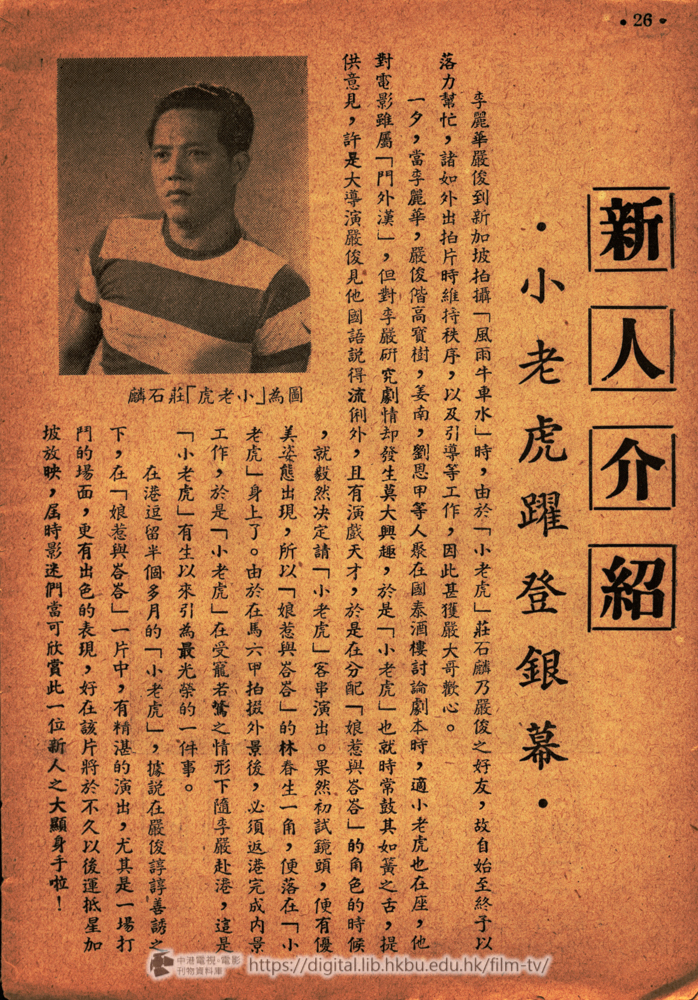 • 26 •
新人介紹
•小老虎躍登銀幕•
李麗華嚴俊到新加坡拍攝「風雨牛車水」時，由於「小老虎」莊石麟乃嚴俊之好友，故自始至終予以
落力幫忙，諸如外出拍片時維持秩序，以及引導等工作，因此甚獲嚴大哥歡心。
一夕，當李麗華，嚴俊偕高寶樹，姜南，劉恩甲等人聚在國泰酒樓討論劇本時，適小老虎也在座，他
對電影雖屬「門外漢」，但對李嚴研究劇情却發生莫大興趣，於是「小老虎」也就時常鼓其如簧之舌，提
供意見，許是大導演嚴俊見他國語說得流俐外，且有演戲天才，於是在分配「娘惹與峇峇」的角色的時候
，就毅然决定請「小老虎」客串演出。果然初試鏡頭，便有優
美姿態出現，所以「娘惹與峇峇」的林春生一角，便落在「小
老虎」身上了。由於在馬六甲拍掇外景後，必須返港完成内景
工作，於是「小老虎」在受寵若驚之情形下隨李嚴赴港，這是
「小老虎」有生以來引為最光榮的一件事。
在港逗留半個多月的「小老虎」，據説在嚴俊諄諄善誘之
下，在「娘惹與峇峇」一片中，有精湛的演出，尤其是一場打
鬥的場面，更有出色的表現，好在該片將於不久以後運抵星加
坡放映，屆時影迷們當可欣賞此一位新人之大顯身手啦！
圖為「小老虎」莊石麟
中港電視・電影
刊物資料庫
https://digital.lib.hkbu.edu.hk/film-tv/